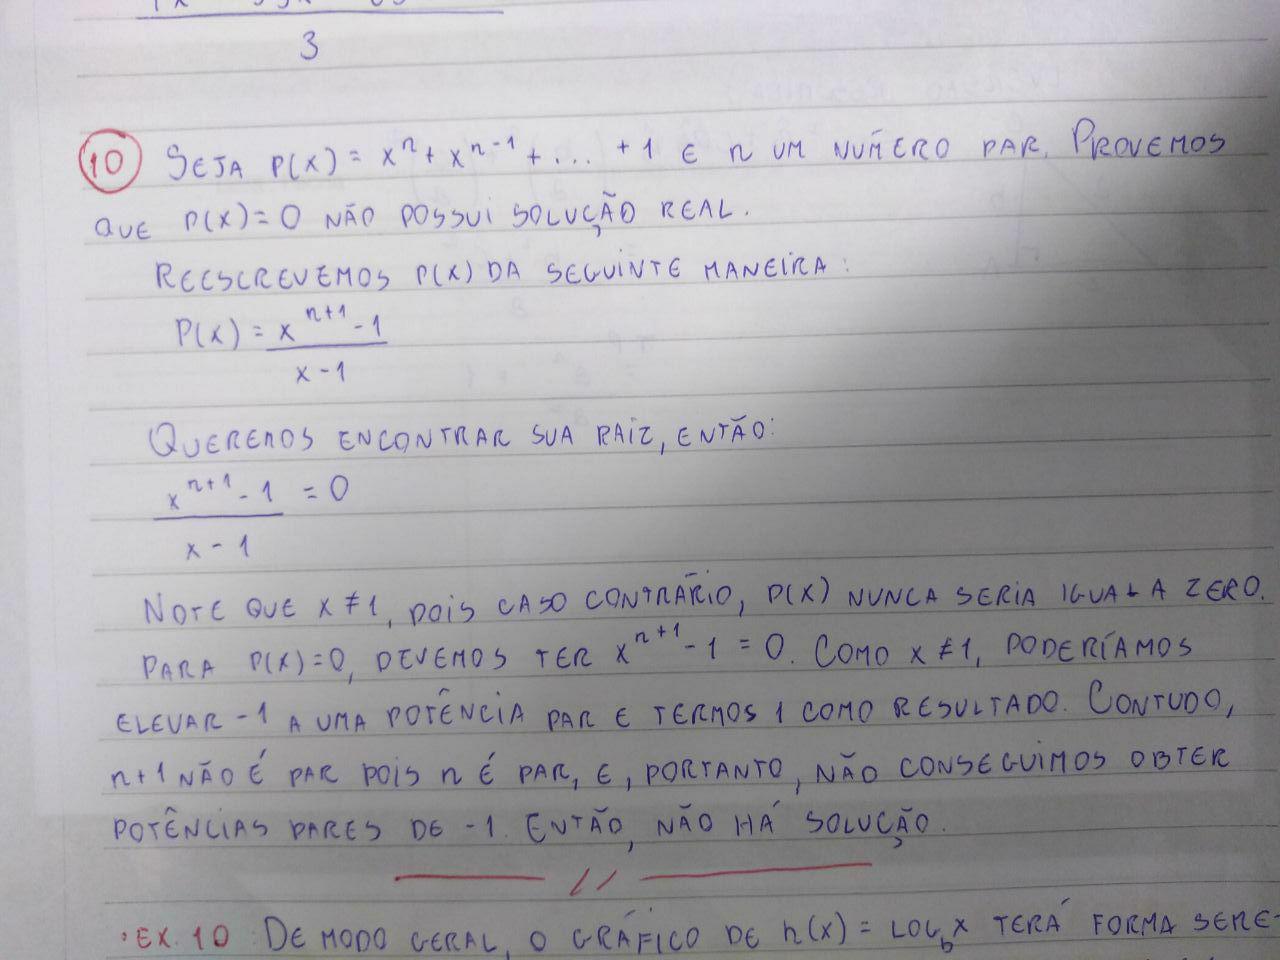 3
10 SEJA P(X) = x^n + x^{n-1} + ... + 1 E n UM NÚMERO PAR. PROVEMOS
QUE P(X) = 0 NÃO POSSUI SOLUÇÃO REAL.
REESCREVEMOS P(X) DA SEGUINTE MANEIRA:
P(X) = x^{n+1} - 1
x - 1
QUEREMOS ENCONTRAR SUA RAIZ, ENTÃO:
x^{n+1} - 1 = 0
x - 1
NOTE QUE X ≠ 1, POIS CASO CONTRÁRIO, P(X) NUNCA SERIA IGUAL A ZERO.
PARA P(X) = 0, DEVEMOS TER x^{n+1} - 1 = 0. COMO X ≠ 1, PODERÍAMOS
ELEVAR -1 A UMA POTÊNCIA PAR E TERMOS 1 COMO RESULTADO. CONTUDO,
n+1 NÃO É PAR POIS n É PAR, E, PORTANTO, NÃO CONSEGUIMOS OBTER
POTÊNCIAS PARES DE -1. ENTÃO, NÃO HÁ SOLUÇÃO.
//
• EX. 10 DE MODO GERAL, O GRÁFICO DE h(x) = LOG_b X TERÁ FORMA SEME-